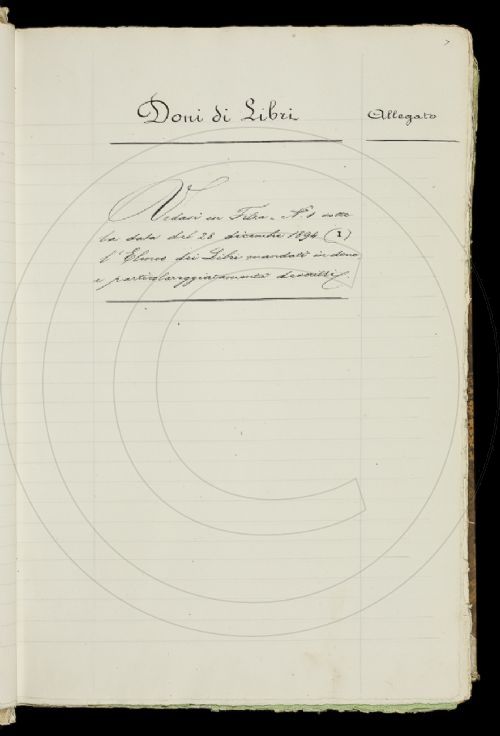 7
Doni di Libri
Allegato
Vedasi in Filza N.º 1 sotto
la data del 28 dicembre 1894 (1)
l'Elenco dei Libri mandati in dono
e particolareggiatamente descritti